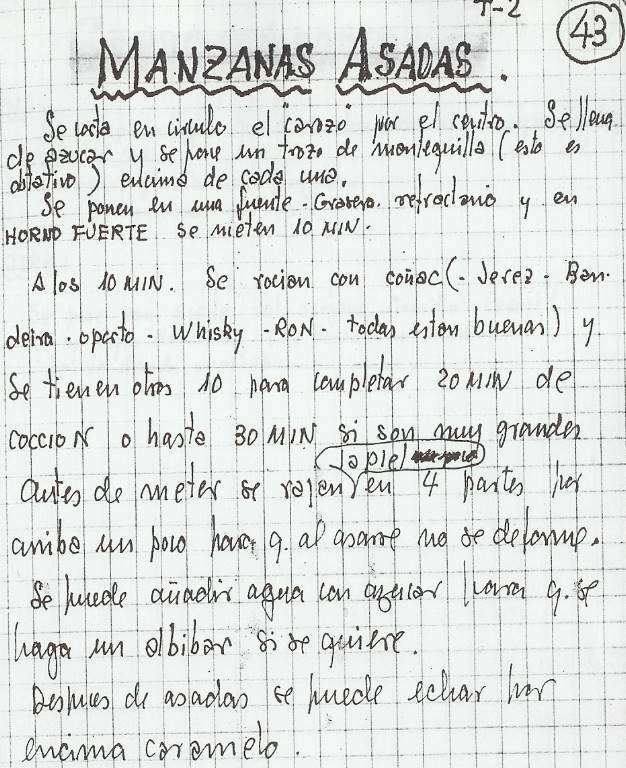 T-2
43
MANZANAS ASADAS.
Se corta en circulo el "carozo" por el centro. Se llena
de azucar y se pone un trozo de mantequilla (esto es
obtativo) encima de cada una.
Se ponen en una fuente - Grasera - refractario y en
HORNO FUERTE se meten 10 MIN.
A los 10 MIN. Se rocian con coñac (- Jerez - Ban-
deira - oporto - Whisky - RON - todas estan buenas) y
Se tienen otros 10 para completar 20 MIN de
COCCION o hasta 30 MIN si son muy grandes
la piel
Antes de meter se rajan en 4 partes por
arriba un poco para q. al asarse no se deforme.
Se puede añadir agua con azucar para q. se
haga un albibar si se quiere.
Despues de asadas se puede echar por
encima caramelo.